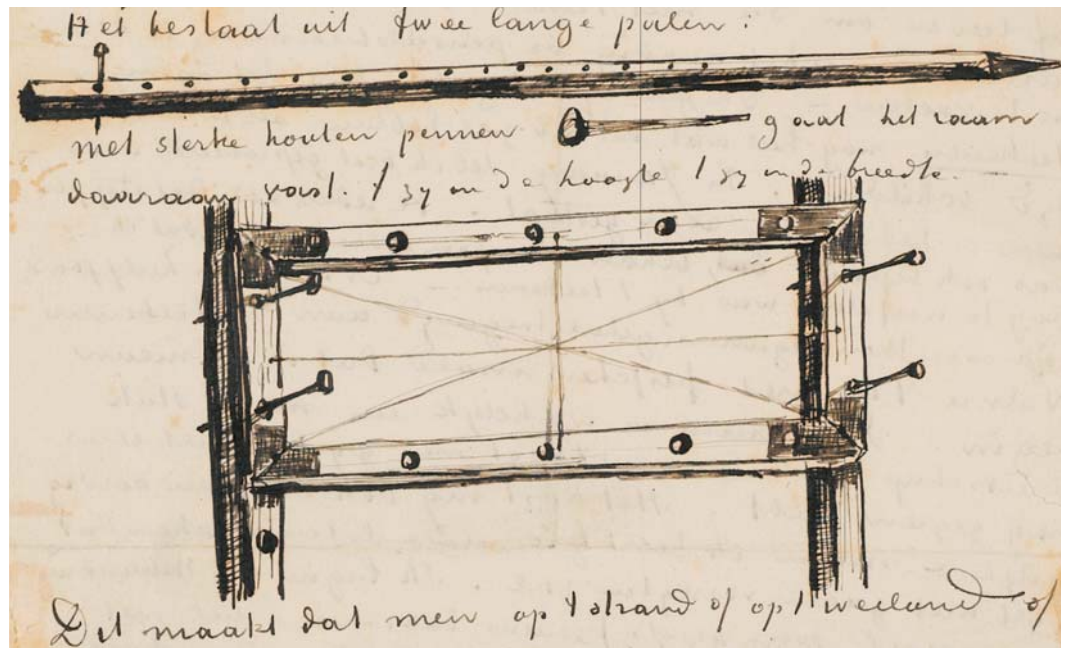 Het bestaat uit twee lange palen:
met sterke houten pennen gaat het raam
daaraan vast. 't zij in de hoogte 't zij in de breedte.
Dit maakt dat men op 't strand of op 't weiland of